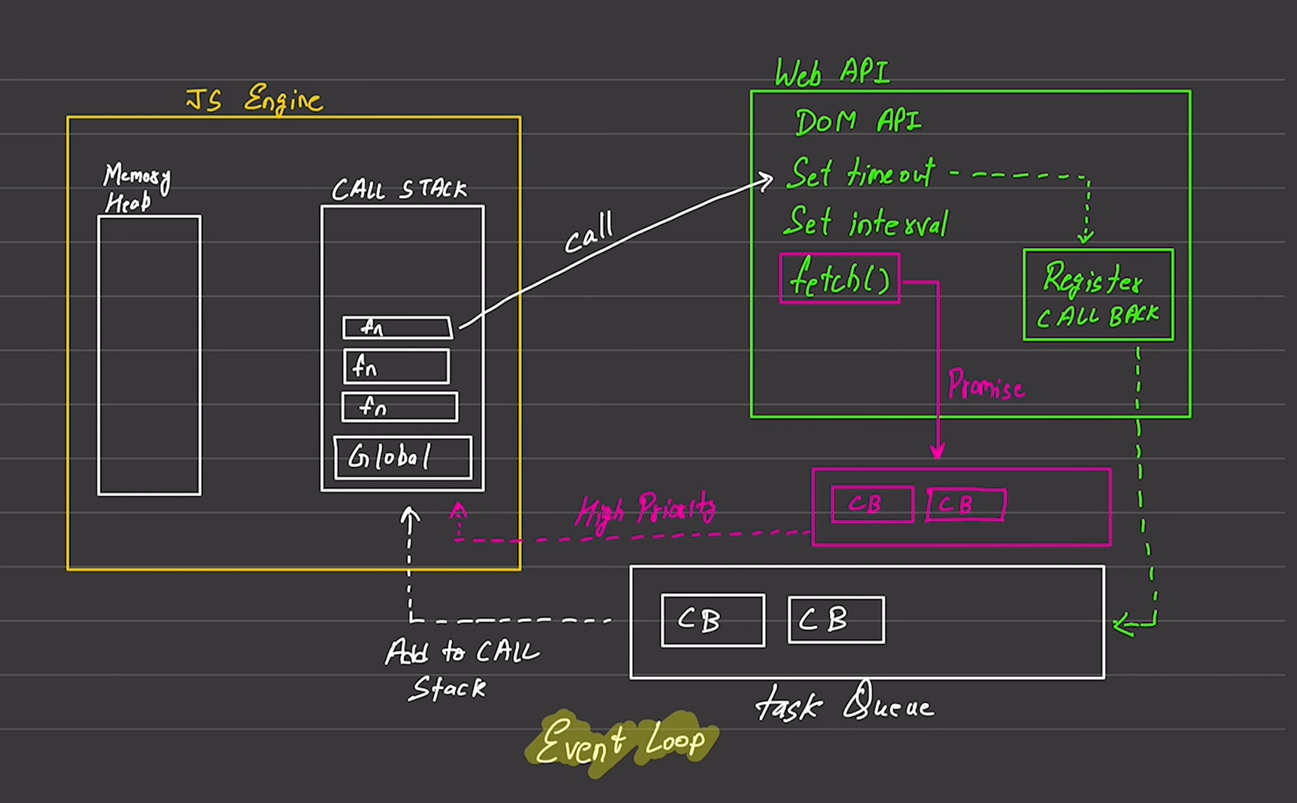 JS Engine
Memory
Heap
CALL STACK
fn
fn
fn
Global
call
Web API
DOM API
Set timeout
Set interval
fetch()
Register
CALL BACK
Promise
High Priority
CB CB
CB CB
task Queue
Add to CALL
Stack
Event Loop